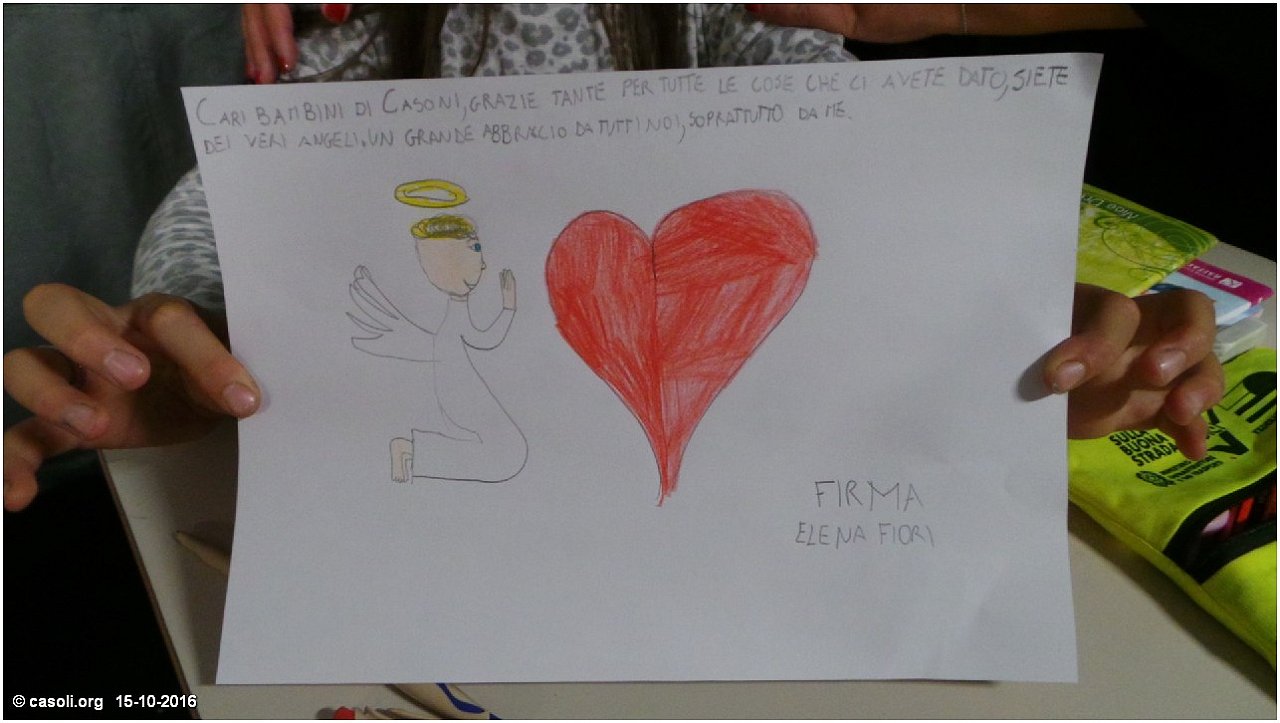 CARI BAMBINI DI CASONI, GRAZIE TANTE PER TUTTE LE COSE CHE CI AVETE DATO, SIETE
DEI VERI ANGELI. UN GRANDE ABBRACCIO DA TUTTI NOI, SOPRATTUTTO DA ME.
FIRMA
ELENA FIORI
SULLA
BUONA
STRADA
© casoli.org 15-10-2016